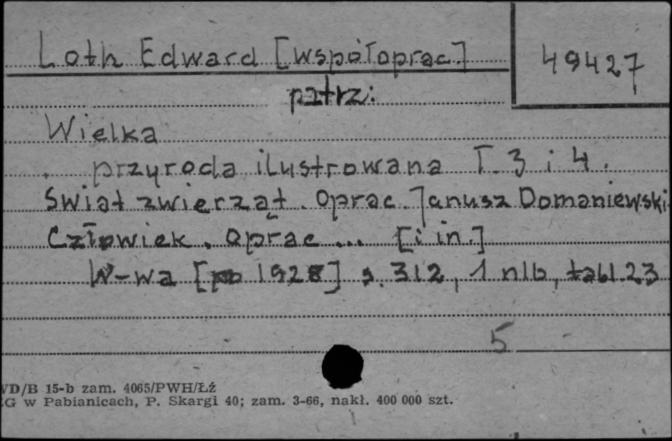 Loth Edward [współoprac.]
49427
patrz:
Wielka
przyroda ilustrowana T. 3 i 4.
Świat zwierząt. Oprac. Janusz Domaniewski.
Człowiek. Oprac ... [i in.]
W-wa [po 1928] s. 312, 1 nlb, tabl. 23
5
WD/B 15-b zam. 4065/PWH/Łź
G w Pabianicach, P. Skargi 40; zam. 3-66, nakł. 400 000 szt.